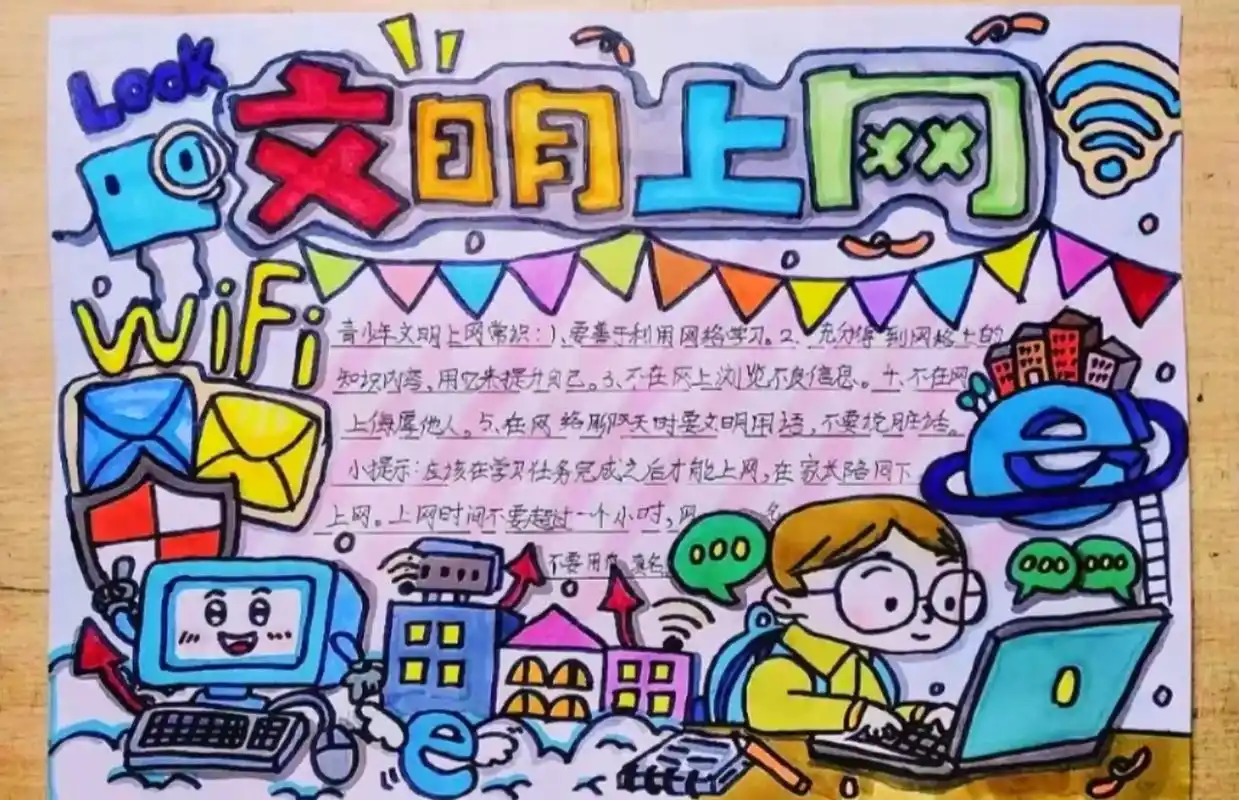 Look
文明上网
WiFi
青少年文明上网常识:1、要善于利用网络学习。2、充分得到网络上的
知识内容,用它来提升自己。3、不在网上浏览不良信息。4、不在网
上侮辱他人。5、在网络聊天时要文明用语,不要说脏话。
小提示:应该在学习任务完成之后才能上网,在家长陪同下
上网。上网时间不要超过一个小时,网 名
不要用 真名
e
e